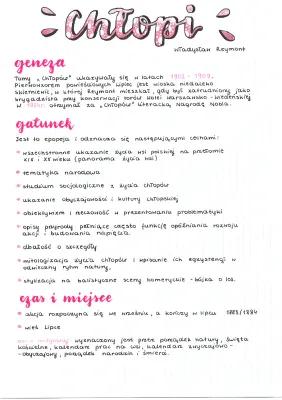 Chłopi
Władysław Reymont
geneza
Tomy „Chłopów" ukazywały się w latach 1902 - 1909.
Pierwowzorem powieściowych Lipiec jest wioska niedaleko
Skierniewic, w której Reymont mieszkał, gdy był zatrudniony jako
brygadzista przy konserwacji torów kolei warszawsko - wiedeńskiej
W 1924r. otrzymał za „Chłopów" literacką Nagrodę Nobla.
gatunek
Jest to epopeja i odznacza się następującymi cechami:
• wszechstronne ukazanie życia wsi polskiej na przełomie
XIX i XX wieku (panorama życia wsi)
• tematyka narodowa
• studium socjologiczne z życia chłopów
• ukazanie obyczajowości i kultury chłopskiej
• obiektywizm i rzeczowość w prezentowaniu problematyki
• opisy przyrody pełniące często funkcję opóźniania rozwoju
akcji i budowania napięcia.
• dbałość o szczegóły
• mitologizacja życia chłopów i wpisanie ich egzystencji w
odwieczny rytm natury,
• stylizacja na batalistyczne sceny homeryckie - bójka o las.
czas i miejsce
• akcja rozpoczyna się we wrześniu, a kończy w lipcu 1883/1884
• wieś Lipce
wyznaczony jest przez porządek natury, święta
kościelne, kalendarz prac na wsi, kalendarz zwyczajowo-
-obyczajowy, porządek narodzin i śmierci.